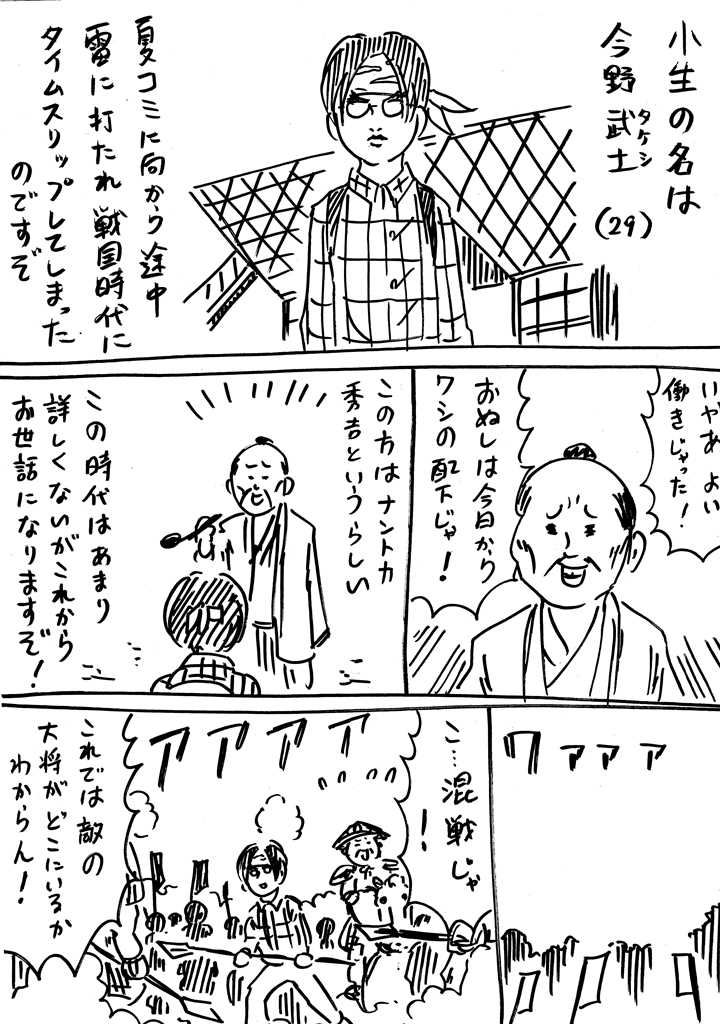 小生の名は
今野武士
タケシ
(29)
夏コミに向かう途中
雷に打たれ戦国時代に
タイムスリップしてしまった
のですぞ
いやあ よい
働きじゃった!
おぬしは今日から
ワシの配下じゃ!
この方はナントカ
秀吉というらしい
この時代はあまり
詳しくないがこれから
お世話になりますぞ!
ワァァァ
アアアア
こ…混戦じゃ
!
これでは敵の
大将がどこにいるか
わからん!